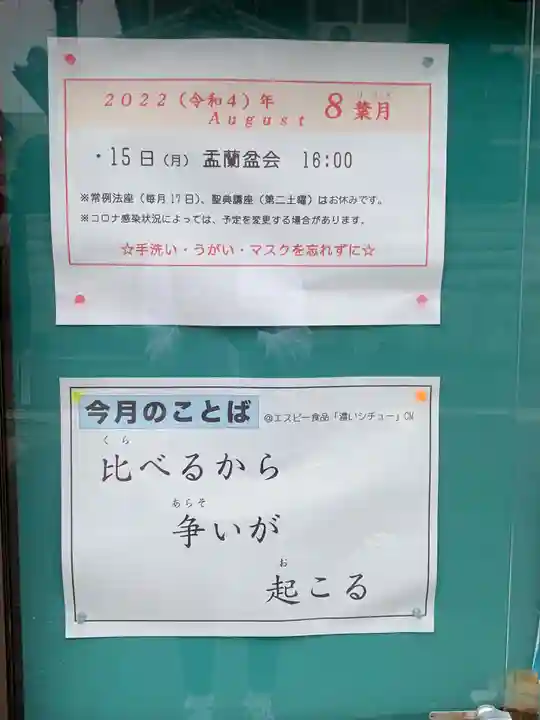 2022(令和4)年
August
8 葉月
・15日(月) 盂蘭盆会 16:00
※常例法座(毎月17日)、聖典講座(第二土曜)はお休みです。
※コロナ感染状況によっては、予定を変更する場合があります。
☆手洗い・うがい・マスクを忘れずに☆
今月のことば @エスビー食品「濃いシチュー」CM
くら
比べるから
あらそ
争いが
お
起こる